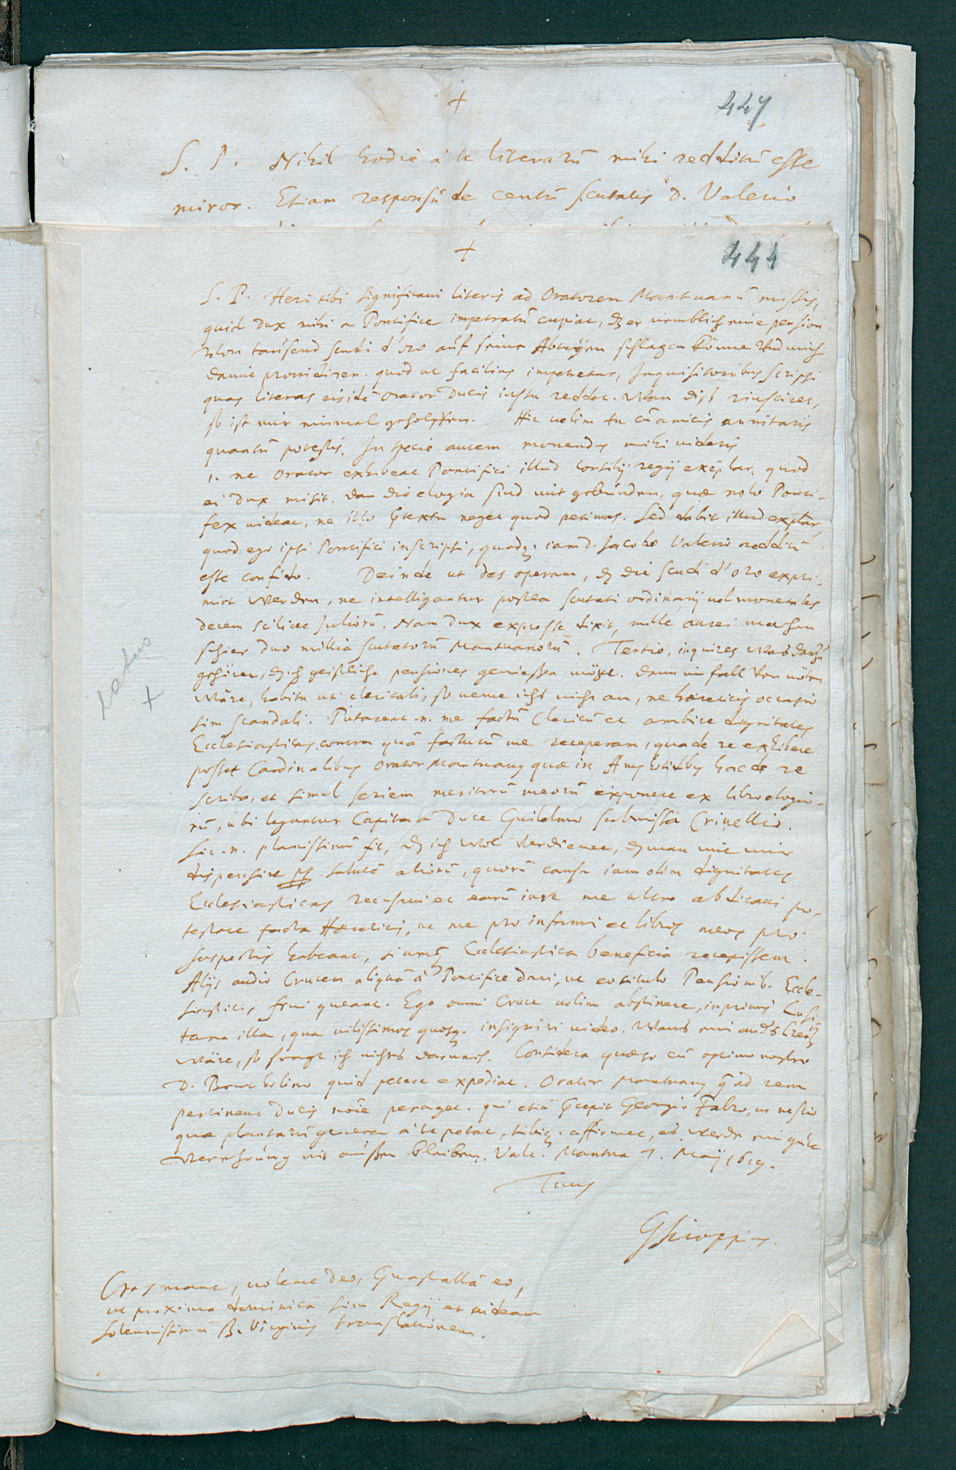 +
447
S. P. Nihil hodie à te literarũ mihi redditũ esse
miror. Etiam responsũ de centũ scutatis D. Valerio
+
444
S. P. Heri tibi significavi literis ad Oratorem Mantuanũ missis,
quid Dux mihi a Pontifice impetratũ cupiat, dz er nemblich eine pension
von tausend scudi d'oro auf seine Abteyen schlagen könne und mich
damit providiren. quod ut facilius impetretur, Inquisitoribus scripsi
quas literas eisdẽ Orator Ducis iussu reddet. Wan diß riuscires,
so ist mir einmal geholffen. Hic velim tu cũ amicis annitaris
quantũ potestis. In specie autem monendus mihi videris
1. ne Orator exhibeat Pontifici illud Consilij regij exẽplar, quod
ei Dux misit. dan die elogia sind mit gebunden, quæ nolo Ponti-
fex videat, ne illo prætextu neget quod petimus. Sed dabit illud exẽplar,
quod ego ipsi Pontifici inscripsi, quodq; iam d. Jacobo Valerio redditũ
esse confido. Deinde ut des operam, dz die scudi d'oro expri-
mirt werden, ne intelligantur postea scutati ordinarij vel monetales
decem scilicet Juliorũ. Nam Dux expresse dixit, mille aurei machen
schier duo millia scutatorũ Mantuanorũ. Tertio, inquires was darzu
gehören, dz ich geistliche pensiones geniessen möge. Dann im fall von nöten
wäre, habitu uti clericali, so neme ichs nicht an, ne hæreticis occasio
sim scandali. Putarent .n. me factũ Clericũ et ambire dignitates
Ecclesiasticas, contra quã facturũ me receperam, qua de re exhibere
posset Cardinalibus Orator Mantuanus quæ in Amphotidibus hac de re
scribo, et simul seriem meritorũ meorũ exponere ex libro elogio-
rũ, ubi leguntur Capita a Duce Guilelmo submissa Crivellio.
Sic .n. planissimũ fit, dz ich wol verdienet, dz man mit mir
dispensire pp salutẽ aliorũ, quorũ causa iam olim dignitates
Ecclesiasticas recusavi et earũ iure me ultro abdicavi po-
testate facta Hæreticis, ut me pro infami et libros meos pro
suspectis habeant, si unq̃ Ecclesiastica beneficia recepissem.
Alijs audio Crucem aliquã à Pontifice dari, ut eo titulo Pensionib. Eccle-
siasticis frui queant. Ego omni Cruce velim abstinere, inprimis Lusi-
tana illa, qua vilissimos quosq. insigniri video. Wans mir anders Creutz
wäre, so fragt ich nichts darnach. Considera quæso cũ optimo nostro
D. Bartholino quid petere expediat. Orator Mantuanus q̃ ad rem
pertinent Ducis noĩe peraget. qui etiã præcepit Georgio Fabro, ut nescio
quæ plantarũ genera à te petat, tibiq; affirmet, es werde ein gute
verehrung nit aussen bleiben. Vale. Mantua 7. Maij 1619.
Tuus
GScioppius.
Cras mane, volente Deo, Guastallã eo,
ut proxima dominica sim Regij et videam
solennissimã B. Virginis translationem.
+